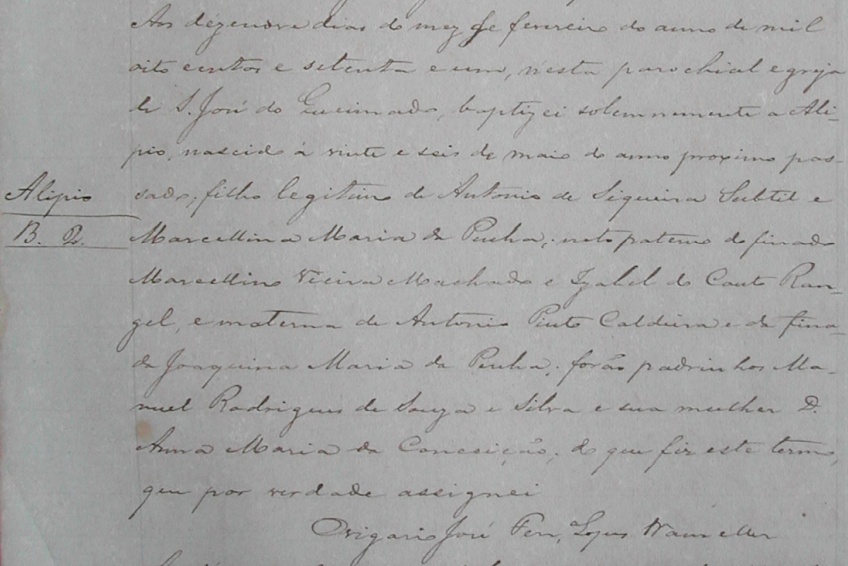 Aos dezenove dias do mez de fevereiro do anno de mil
oito centos e setenta e um, n'esta parochial egreja
de S. José do Queimado, baptizei solemnemente a Ali-
pio, nascido á vinte e seis de maio do anno proximo pas-
Alipio
sado; filho legitimo de Antonio de Siqueira Subtil e
B. 2.
Marcellina Maria da Penha; neto paterno do finado
Marcellino Vieira Machado e Izabel do Couto Ran-
gel, e materno de Antonio Pinto Caldeira e da fina-
da Joaquina Maria da Penha; forão padrinhos Ma-
nuel Rodrigues de Souza e Silva e sua mulher D.
Anna Maria da Conceição; do que fiz este termo,
que por verdade assignei
O vigario José Ferr.ª Lopes